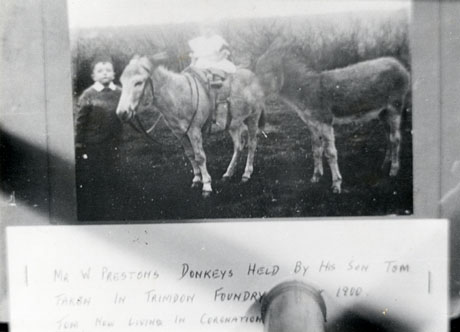 MR W. PRESTONS DONKEYS HELD BY HIS SON TOM
TAKEN IN TRIMDON FOUNDRY 1900.
TOM NOW LIVING IN CORONATION